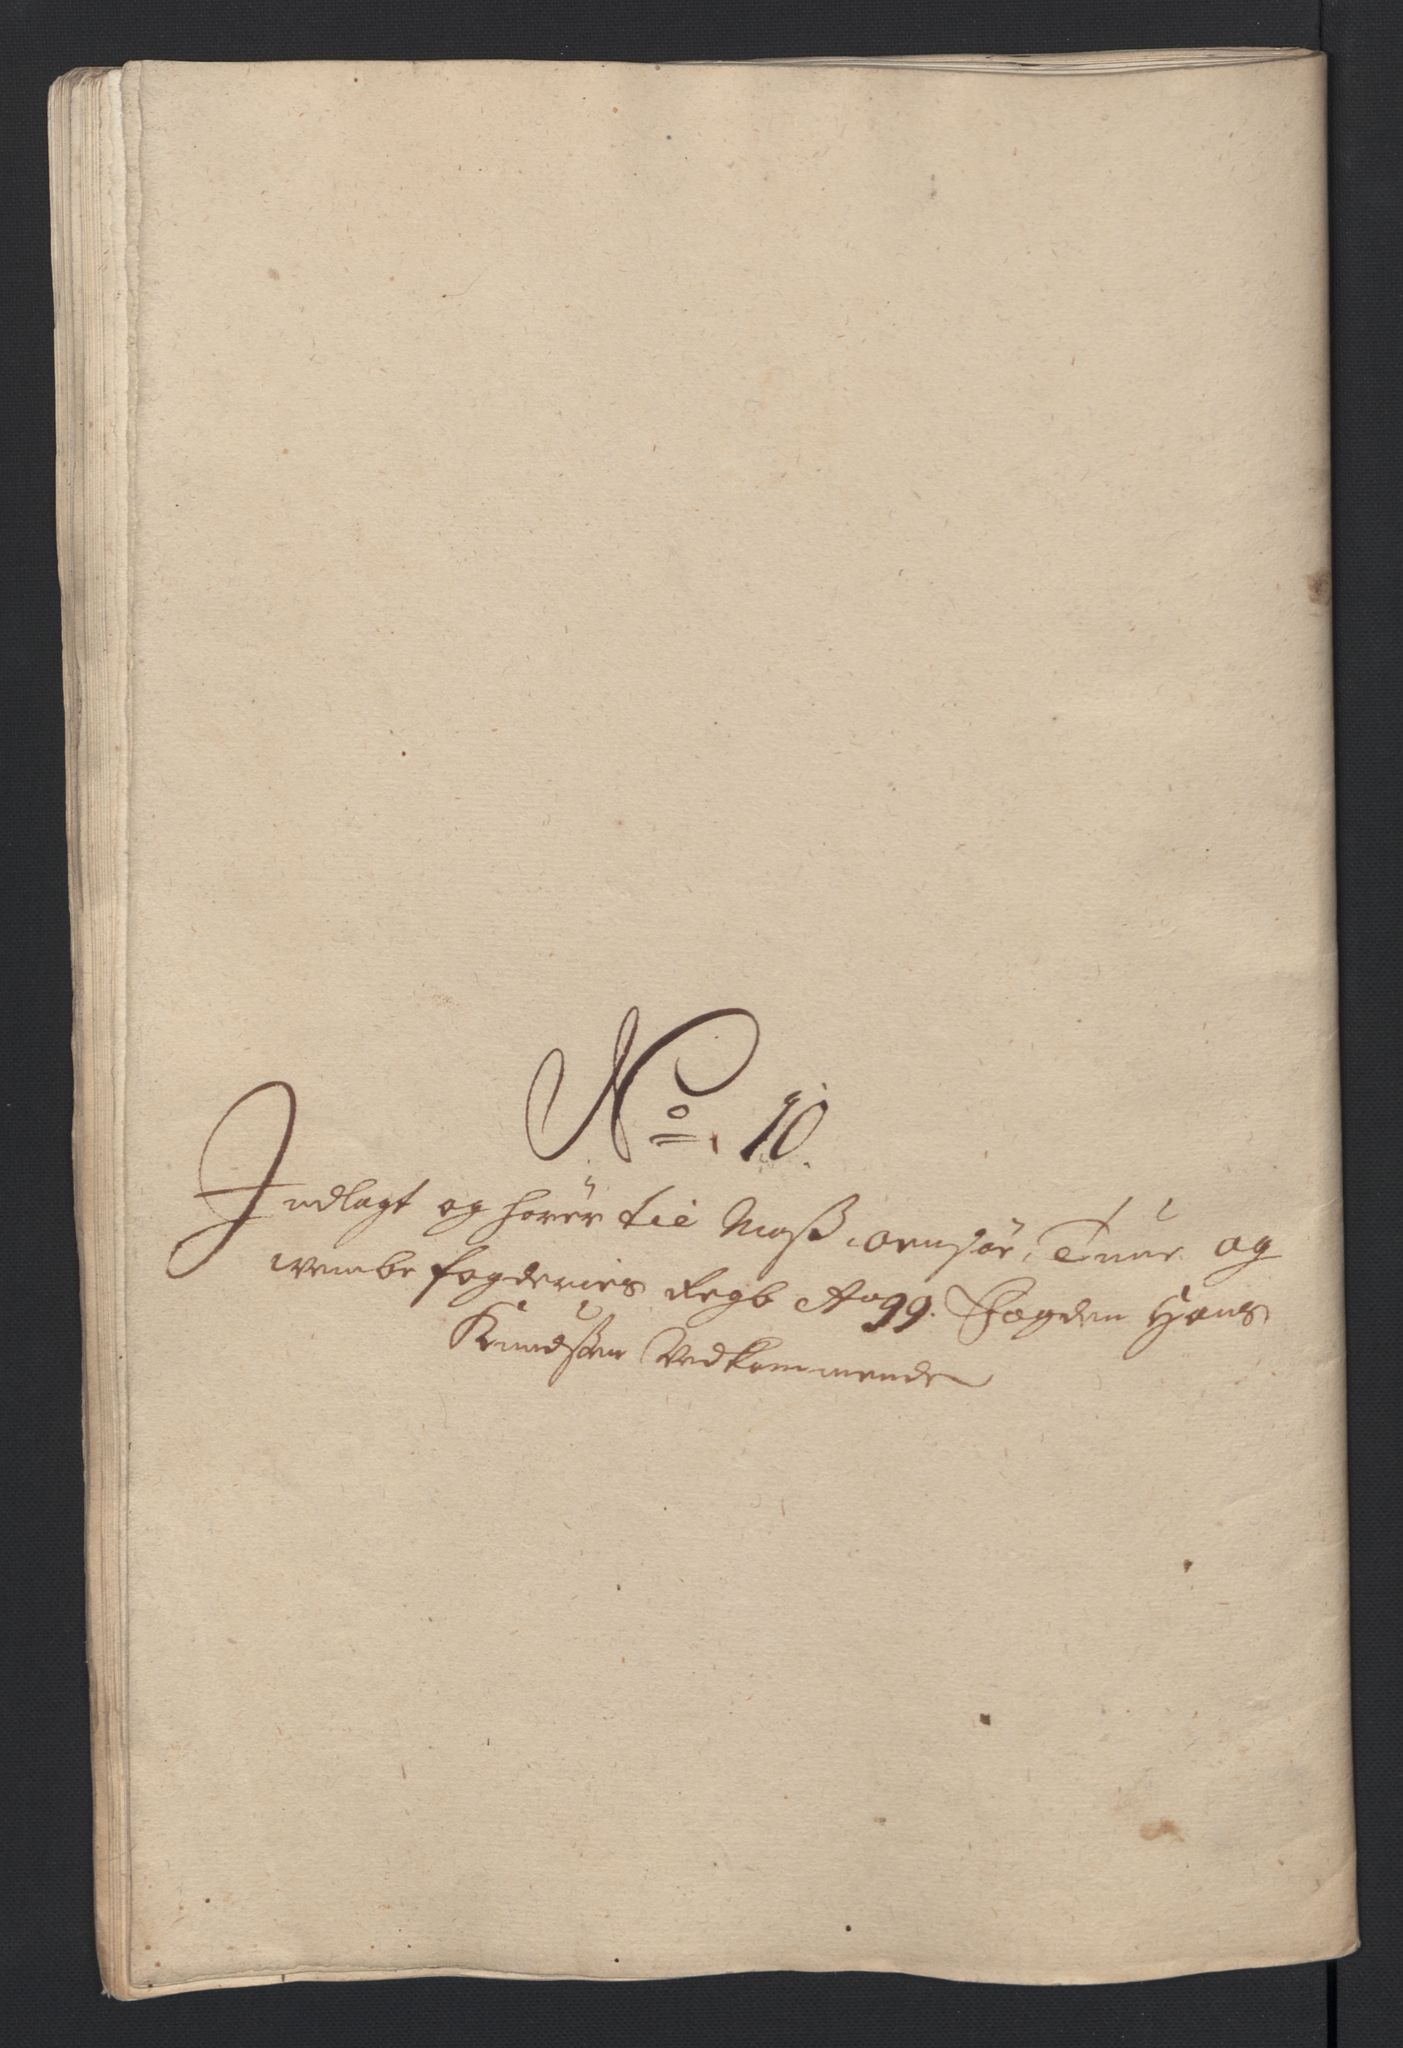 No. 10.
Indlagt og hører til Moss, Onsøe, Tune og
Wembe fogderies Regb Ao 99. Fogden Hans
Knudssen Vedkommende